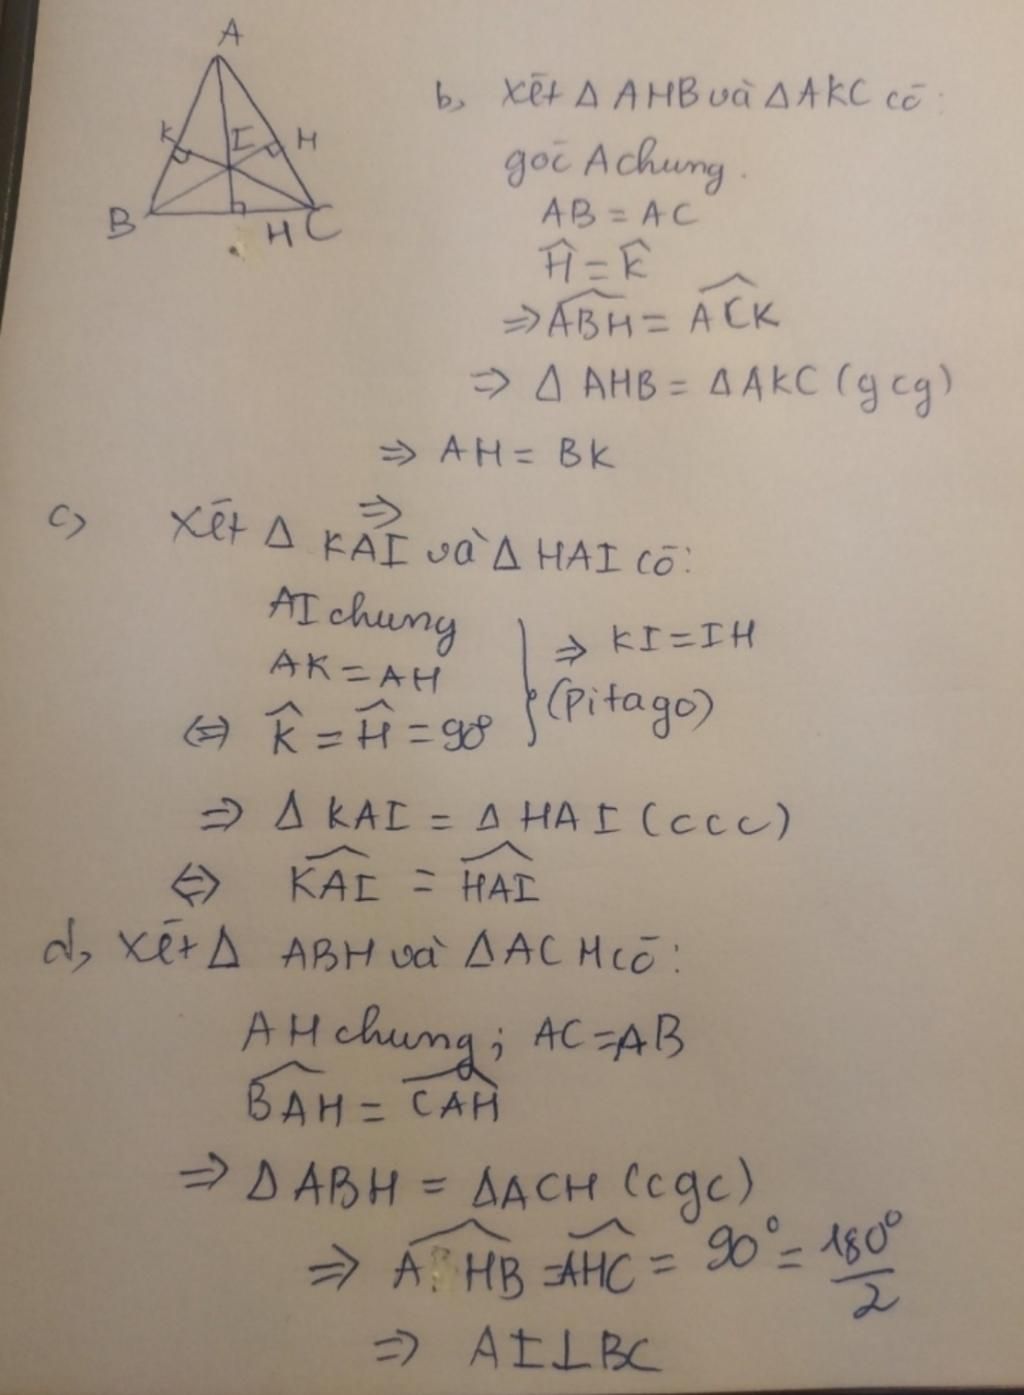 A
K I H
B H C
b, Xét Δ AHB và Δ AKC có:
góc A chung.
AB = AC
Ĥ = K̂
⇒ \widehat{ABH} = \widehat{ACK}
⇒ Δ AHB = Δ AKC (gcg)
⇒ AH = BK
c) Xét Δ ⇒ KAI và Δ HAI có:
AI chung
AK = AH
⇔ K̂ = Ĥ = 90°
} ⇒ KI = IH
(Pitago)
⇒ Δ KAI = Δ HAI (ccc)
⇔ \widehat{KAI} = \widehat{HAI}
d, Xét Δ ABH và Δ ACH có:
AH chung; AC = AB
\widehat{BAH} = \widehat{CAH}
⇒ Δ ABH = Δ ACH (cgc)
⇒ \widehat{AHB} = \widehat{AHC} = 90° = 180°/2
⇒ AI ⊥ BC